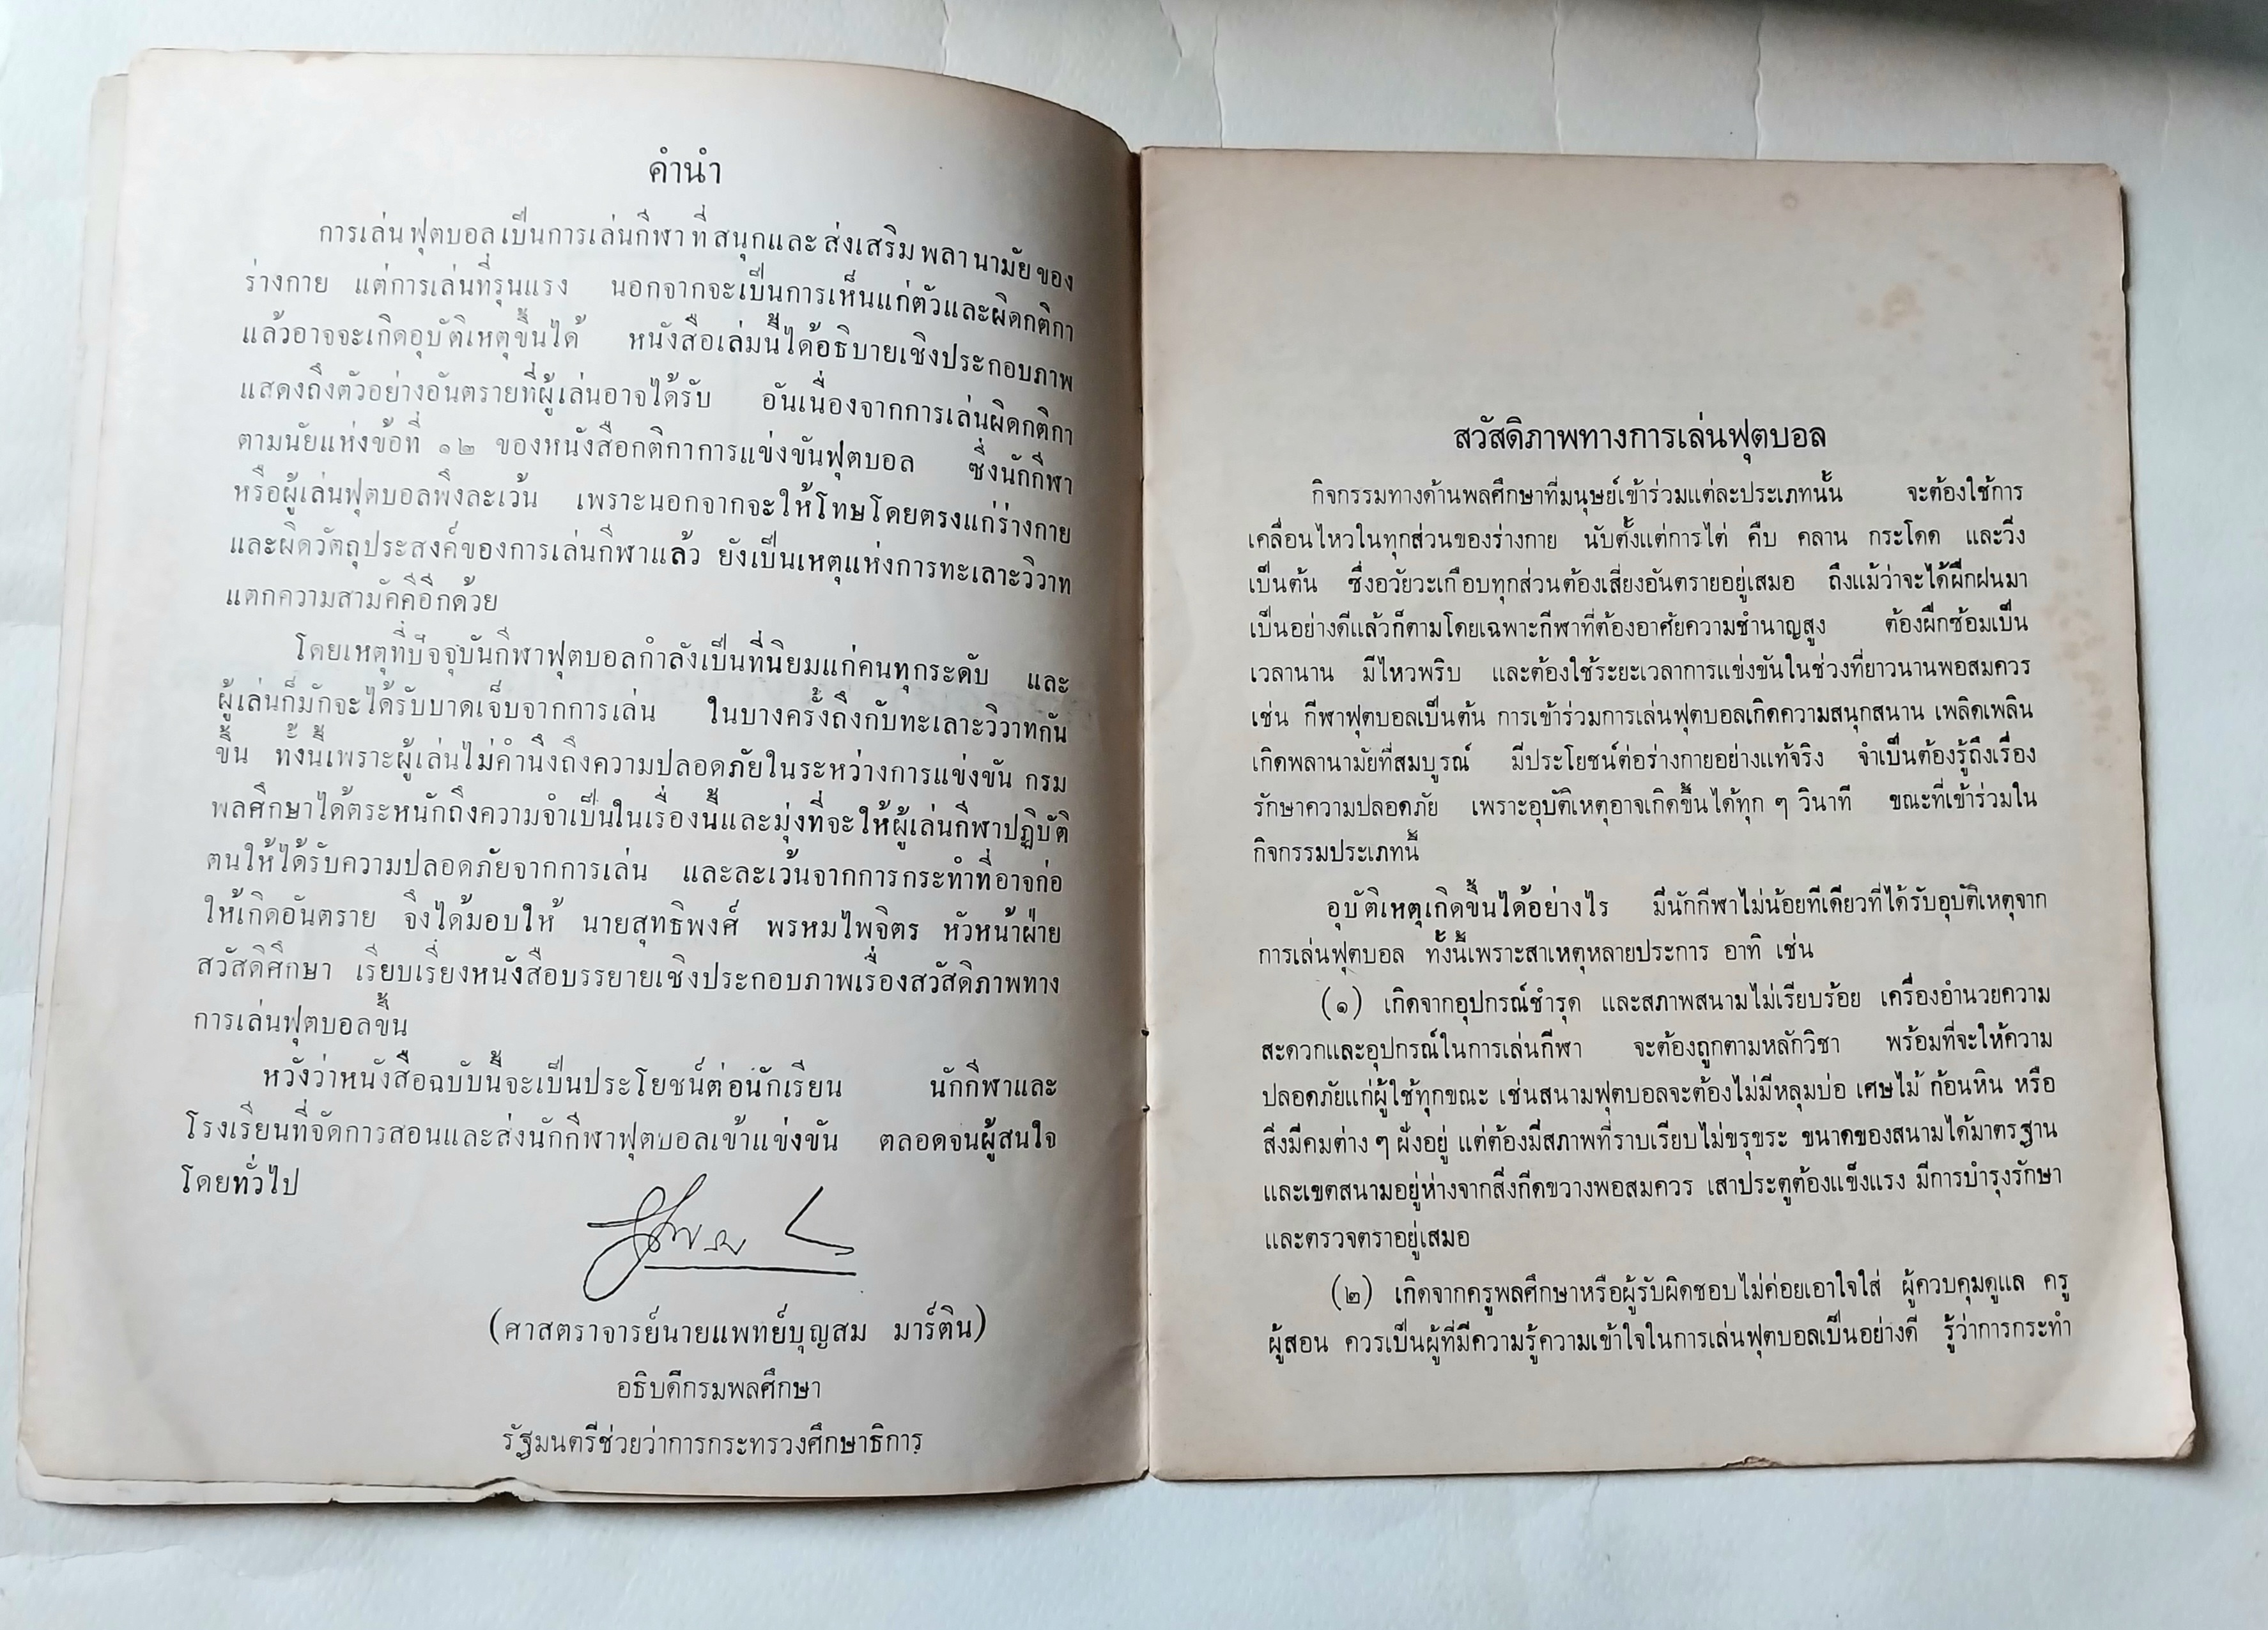 คำนำ
การเล่นฟุตบอลเป็นการเล่นกีฬาที่สนุกและส่งเสริมพลานามัยของ
ร่างกาย แต่การเล่นที่รุนแรง นอกจากจะเป็นการเห็นแก่ตัวและผิดกติกา
แล้วอาจจะเกิดอุบัติเหตุขึ้นได้ หนังสือเล่มนี้ได้อธิบายเชิงประกอบภาพ
แสดงถึงตัวอย่างอันตรายที่ผู้เล่นอาจได้รับ อันเนื่องจากการเล่นผิดกติกา
ตามนัยแห่งข้อที่ ๑๒ ของหนังสือกติกาการแข่งขันฟุตบอล ซึ่งนักกีฬา
หรือผู้เล่นฟุตบอลพึงละเว้น เพราะนอกจากจะให้โทษโดยตรงแก่ร่างกาย
และผิดวัตถุประสงค์ของการเล่นกีฬาแล้ว ยังเป็นเหตุแห่งการทะเลาะวิวาท
แตกความสามัคคีอีกด้วย
โดยเหตุที่ปัจจุบันกีฬาฟุตบอลกำลังเป็นที่นิยมแก่คนทุกระดับ และ
ผู้เล่นก็มักจะได้รับบาดเจ็บจากการเล่น ในบางครั้งถึงกับทะเลาะวิวาทกัน
ขึ้น ทั้งนี้เพราะผู้เล่นไม่คำนึงถึงความปลอดภัยในระหว่างการแข่งขัน กรม
พลศึกษาได้ตระหนักถึงความจำเป็นในเรื่องนี้และมุ่งที่จะให้ผู้เล่นกีฬาปฏิบัติ
ตนให้ได้รับความปลอดภัยจากการเล่น และละเว้นจากการกระทำที่อาจก่อ
ให้เกิดอันตราย จึงได้มอบให้ นายสุทธิพงศ์ พรหมไพจิตร หัวหน้าฝ่าย
สวัสดิศึกษา เรียบเรียงหนังสือบรรยายเชิงประกอบภาพเรื่องสวัสดิภาพทาง
การเล่นฟุตบอลขึ้น
หวังว่าหนังสือฉบับนี้จะเป็นประโยชน์ต่อนักเรียน นักกีฬาและ
โรงเรียนที่จัดการสอนและส่งนักกีฬาฟุตบอลเข้าแข่งขัน ตลอดจนผู้สนใจ
โดยทั่วไป
(ศาสตราจารย์นายแพทย์บุญสม มาร์ติน)
อธิบดีกรมพลศึกษา
รัฐมนตรีช่วยว่าการกระทรวงศึกษาธิการ
สวัสดิภาพทางการเล่นฟุตบอล
กิจกรรมทางด้านพลศึกษาที่มนุษย์เข้าร่วมแต่ละประเภทนั้น จะต้องใช้การ
เคลื่อนไหวในทุกส่วนของร่างกาย นับตั้งแต่การไต่ คืบ คลาน กระโดด และวิ่ง
เป็นต้น ซึ่งอวัยวะเกือบทุกส่วนต้องเสี่ยงอันตรายอยู่เสมอ ถึงแม้ว่าจะได้ฝึกฝนมา
เป็นอย่างดีแล้วก็ตามโดยเฉพาะกีฬาที่ต้องอาศัยความชำนาญสูง ต้องฝึกซ้อมเป็น
เวลานาน มีไหวพริบ และต้องใช้ระยะเวลาการแข่งขันในช่วงที่ยาวนานพอสมควร
เช่น กีฬาฟุตบอลเป็นต้น การเข้าร่วมการเล่นฟุตบอลเกิดความสนุกสนาน เพลิดเพลิน
เกิดพลานามัยที่สมบูรณ์ มีประโยชน์ต่อร่างกายอย่างแท้จริง จำเป็นต้องรู้ถึงเรื่อง
รักษาความปลอดภัย เพราะอุบัติเหตุอาจเกิดขึ้นได้ทุก ๆ วินาที ขณะที่เข้าร่วมใน
กิจกรรมประเภทนี้
อุบัติเหตุเกิดขึ้นได้อย่างไร มีนักกีฬาไม่น้อยทีเดียวที่ได้รับอุบัติเหตุจาก
การเล่นฟุตบอล ทั้งนี้เพราะสาเหตุหลายประการ อาทิ เช่น
(๑) เกิดจากอุปกรณ์ชำรุด และสภาพสนามไม่เรียบร้อย เครื่องอำนวยความ
สะดวกและอุปกรณ์ในการเล่นกีฬา จะต้องถูกตามหลักวิชา พร้อมที่จะให้ความ
ปลอดภัยแก่ผู้ใช้ทุกขณะ เช่นสนามฟุตบอลจะต้องไม่มีหลุมบ่อ เศษไม้ ก้อนหิน หรือ
สิ่งมีคมต่าง ๆ ฝังอยู่ แต่ต้องมีสภาพที่ราบเรียบไม่ขรุขระ ขนาดของสนามได้มาตรฐาน
และเขตสนามอยู่ห่างจากสิ่งกีดขวางพอสมควร เสาประตูต้องแข็งแรง มีการบำรุงรักษา
และตรวจตราอยู่เสมอ
(๒) เกิดจากครูพลศึกษาหรือผู้รับผิดชอบไม่ค่อยเอาใจใส่ ผู้ควบคุมดูแล ครู
ผู้สอน ควรเป็นผู้ที่มีความรู้ความเข้าใจในการเล่นฟุตบอลเป็นอย่างดี รู้ว่าการกระทำ